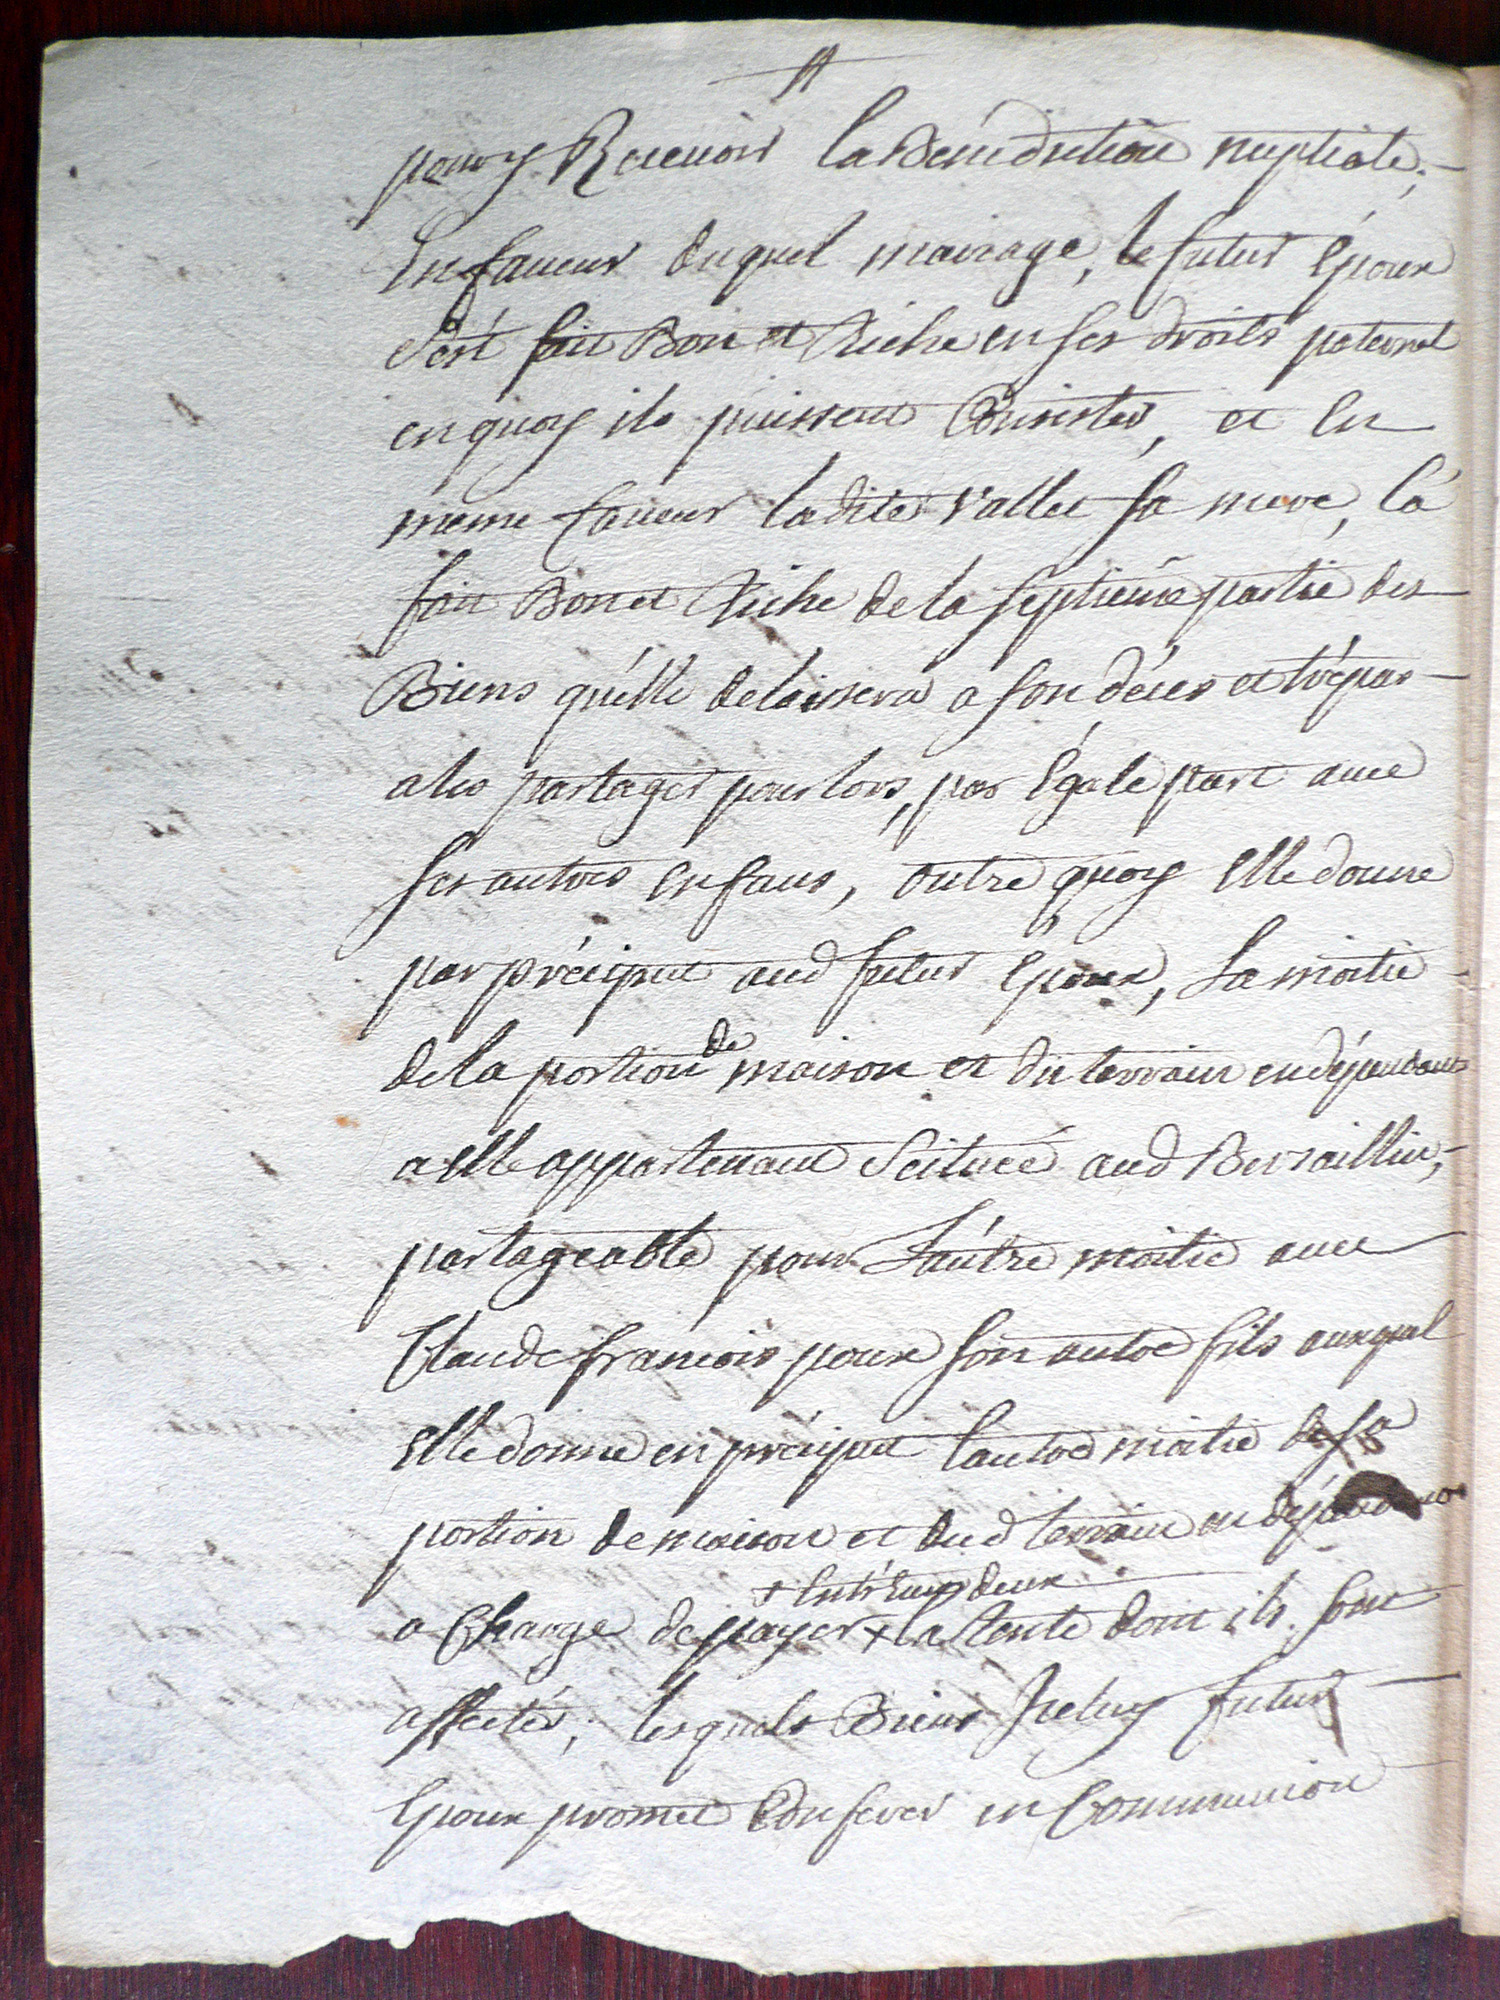 pour y Recevoir la Bénédiction nuptiale ;
En faveur duquel mairage, le futur Epoux
S'est fait Bon et Riche en ses droits paternel
en quoy ils puissent Consister, et En
meme faveur ladite Vallet sa mere, la
fait Bon et Riche de la septieme partie des
Biens qu'elle delaissera a son décès et trépas
a les partager pour lors, par Egale part avec
ses autres Enfans, outre quoy Elle donne
par préciput aud futur Epoux, La moitié
de la portion de maison et du terrain en dépendant
a Elle appartenant Scituée aud Bersaillin,
partageable pour L'autre moitié avec
Claude francois poux son autre fils auxquel
Elle donne en préciput l'autre moitié de sa
portion de maison et dud terrain en
+ Entr'Eux deux
a Charge de payer + la Rente dont ils sont
affectés ; lesquels Biens Iceluy futur
Epoux promet Conferer en Communion